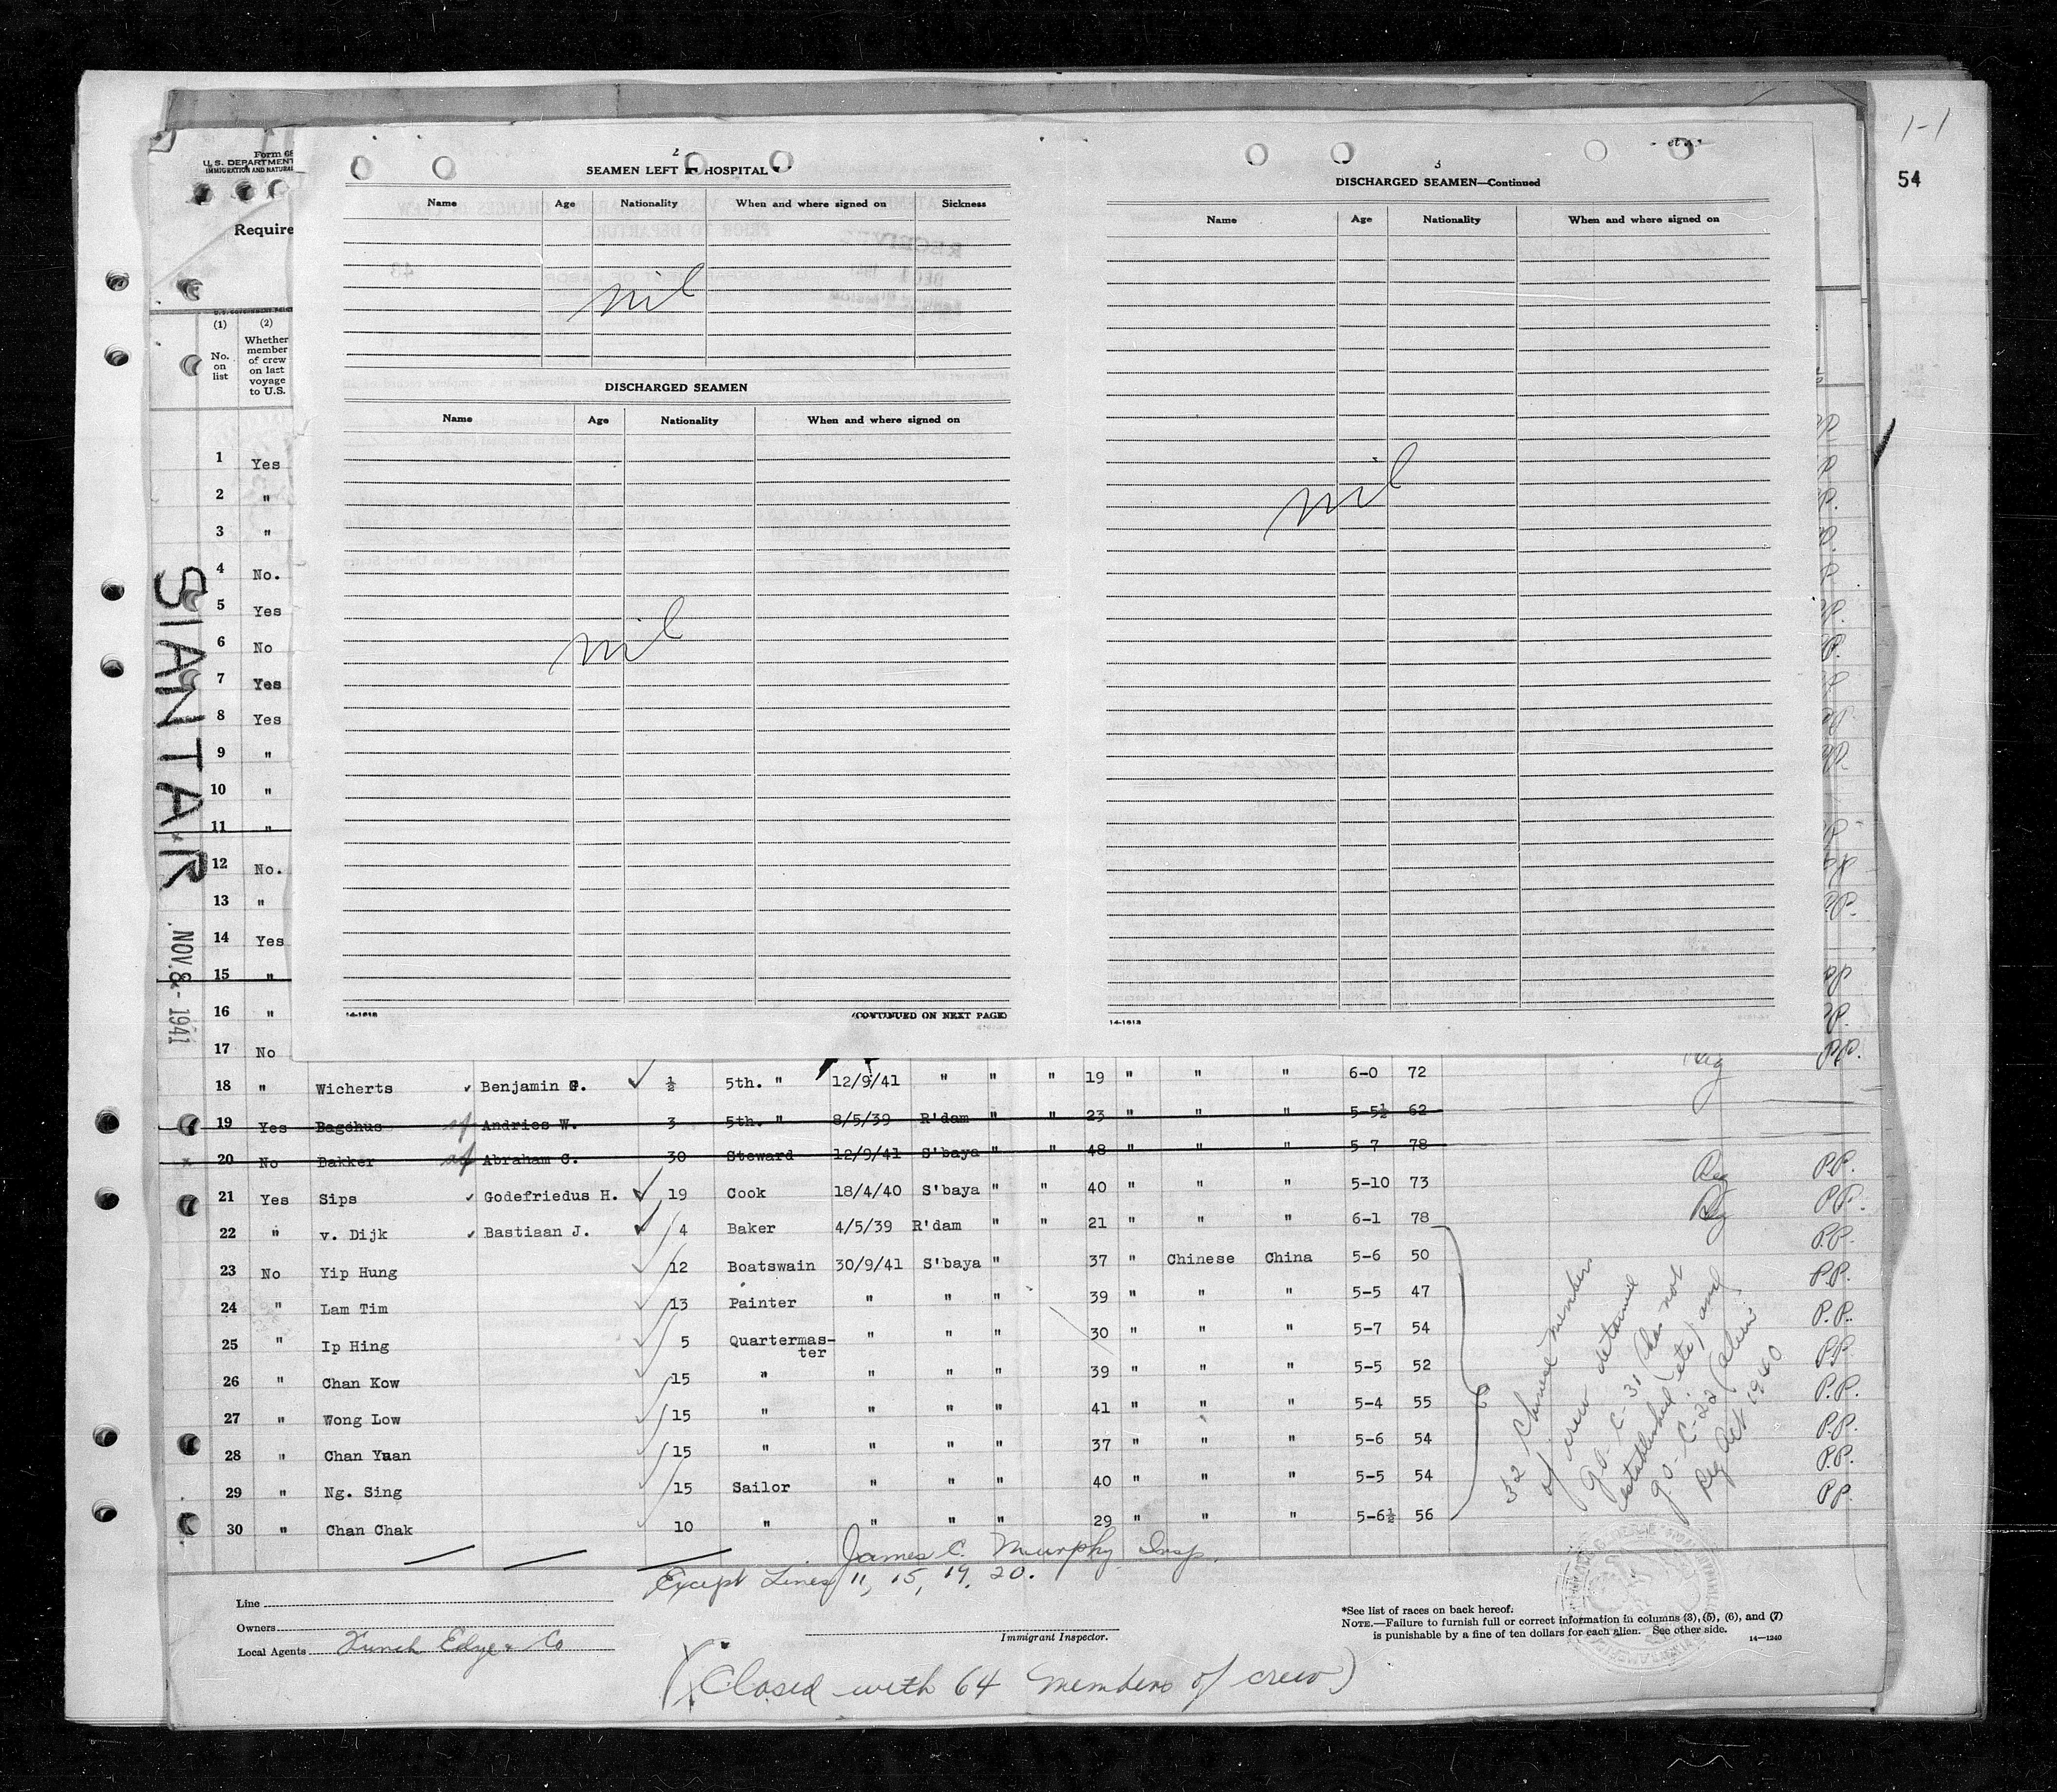 1-1
54
Form 68
U. S. DEPARTMENT
IMMIGRATION AND NATURAL
Require
(1) (2)
No. on list
Whether member of crew on last voyage to U.S.
1 Yes
2 "
3 "
4 No.
5 Yes
6 No
7 Yes
8 Yes
9 "
10 "
11 "
12 No.
13 "
14 Yes
15 "
16 "
17 No
SIANTAR
NOV. 8 - 1941
2
SEAMEN LEFT IN HOSPITAL
Name Age Nationality When and where signed on Sickness
nil
DISCHARGED SEAMEN
Name Age Nationality When and where signed on
nil
14-1613
(CONTINUED ON NEXT PAGE)
3
DISCHARGED SEAMEN—Continued
Name Age Nationality When and where signed on
nil
14-1613
18 " Wicherts Benjamin G. ½ 5th. " 12/9/41 " " " 19 " " " 6-0 72
19 Yes Bagchus Andries W. 3 5th. " 8/5/39 R'dam " " 23 " " " 5-5½ 62
20 No Bakker Abraham C. 30 Steward 12/9/41 S'baya " " 48 " " " 5-7 78 P.P.
21 Yes Sips Godefriedus H. 19 Cook 18/4/40 S'baya " " 40 " " " 5-10 73 Reg P.P.
22 " v. Dijk Bastiaan J. 4 Baker 4/5/39 R'dam " " 21 " " " 6-1 78 Reg P.P.
23 No Yip Hung 12 Boatswain 30/9/41 S'baya " 37 " Chinese China 5-6 50 P.P.
24 " Lam Tim 13 Painter " " " 39 " " " 5-5 47 P.P.
25 " Ip Hing 5 Quartermas-ter " " " 30 " " 5-7 54 P.P.
26 " Chan Kow 15 " " " " 39 " " " 5-5 52 P.P.
27 " Wong Low 15 " " " " 41 " " " 5-4 55 P.P.
28 " Chan Yuan 15 " " " " 37 " " " 5-6 54 P.P.
29 " Ng. Sing 15 Sailor " " " 40 " " " 5-5 54 P.P.
30 " Chan Chak 10 " " " " 29 " " " 5-6½ 56
32 Chinese members
of crew detained
G.O. C-31 (has not
established etc) and
G.O. C-22 (alien
Reg Act 1940
James C. Murphy Insp.
Except Lines 11, 15, 19, 20.
Line
Owners
Local Agents Funch Edye & Co
Immigrant Inspector.
*See list of races on back hereof.
NOTE.—Failure to furnish full or correct information in columns (3), (5), (6), and (7)
is punishable by a fine of ten dollars for each alien. See other side.
14—1240
(Closed with 64 members of crew)